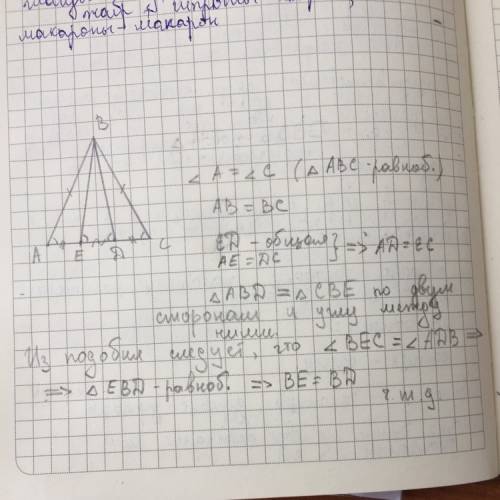 жабр
макароны - макарон
B
A E D C
∠A = ∠C (△ABC - равноб.)
AB = BC
ED - общая
AE = DC } => AD = EC
△ABD = △CBE по двум
сторонам и углу между
ними.
Из подобия следует, что ∠BEC = ∠ADB =>
=> △EBD - равноб. => BE = BD
ч.т.д.